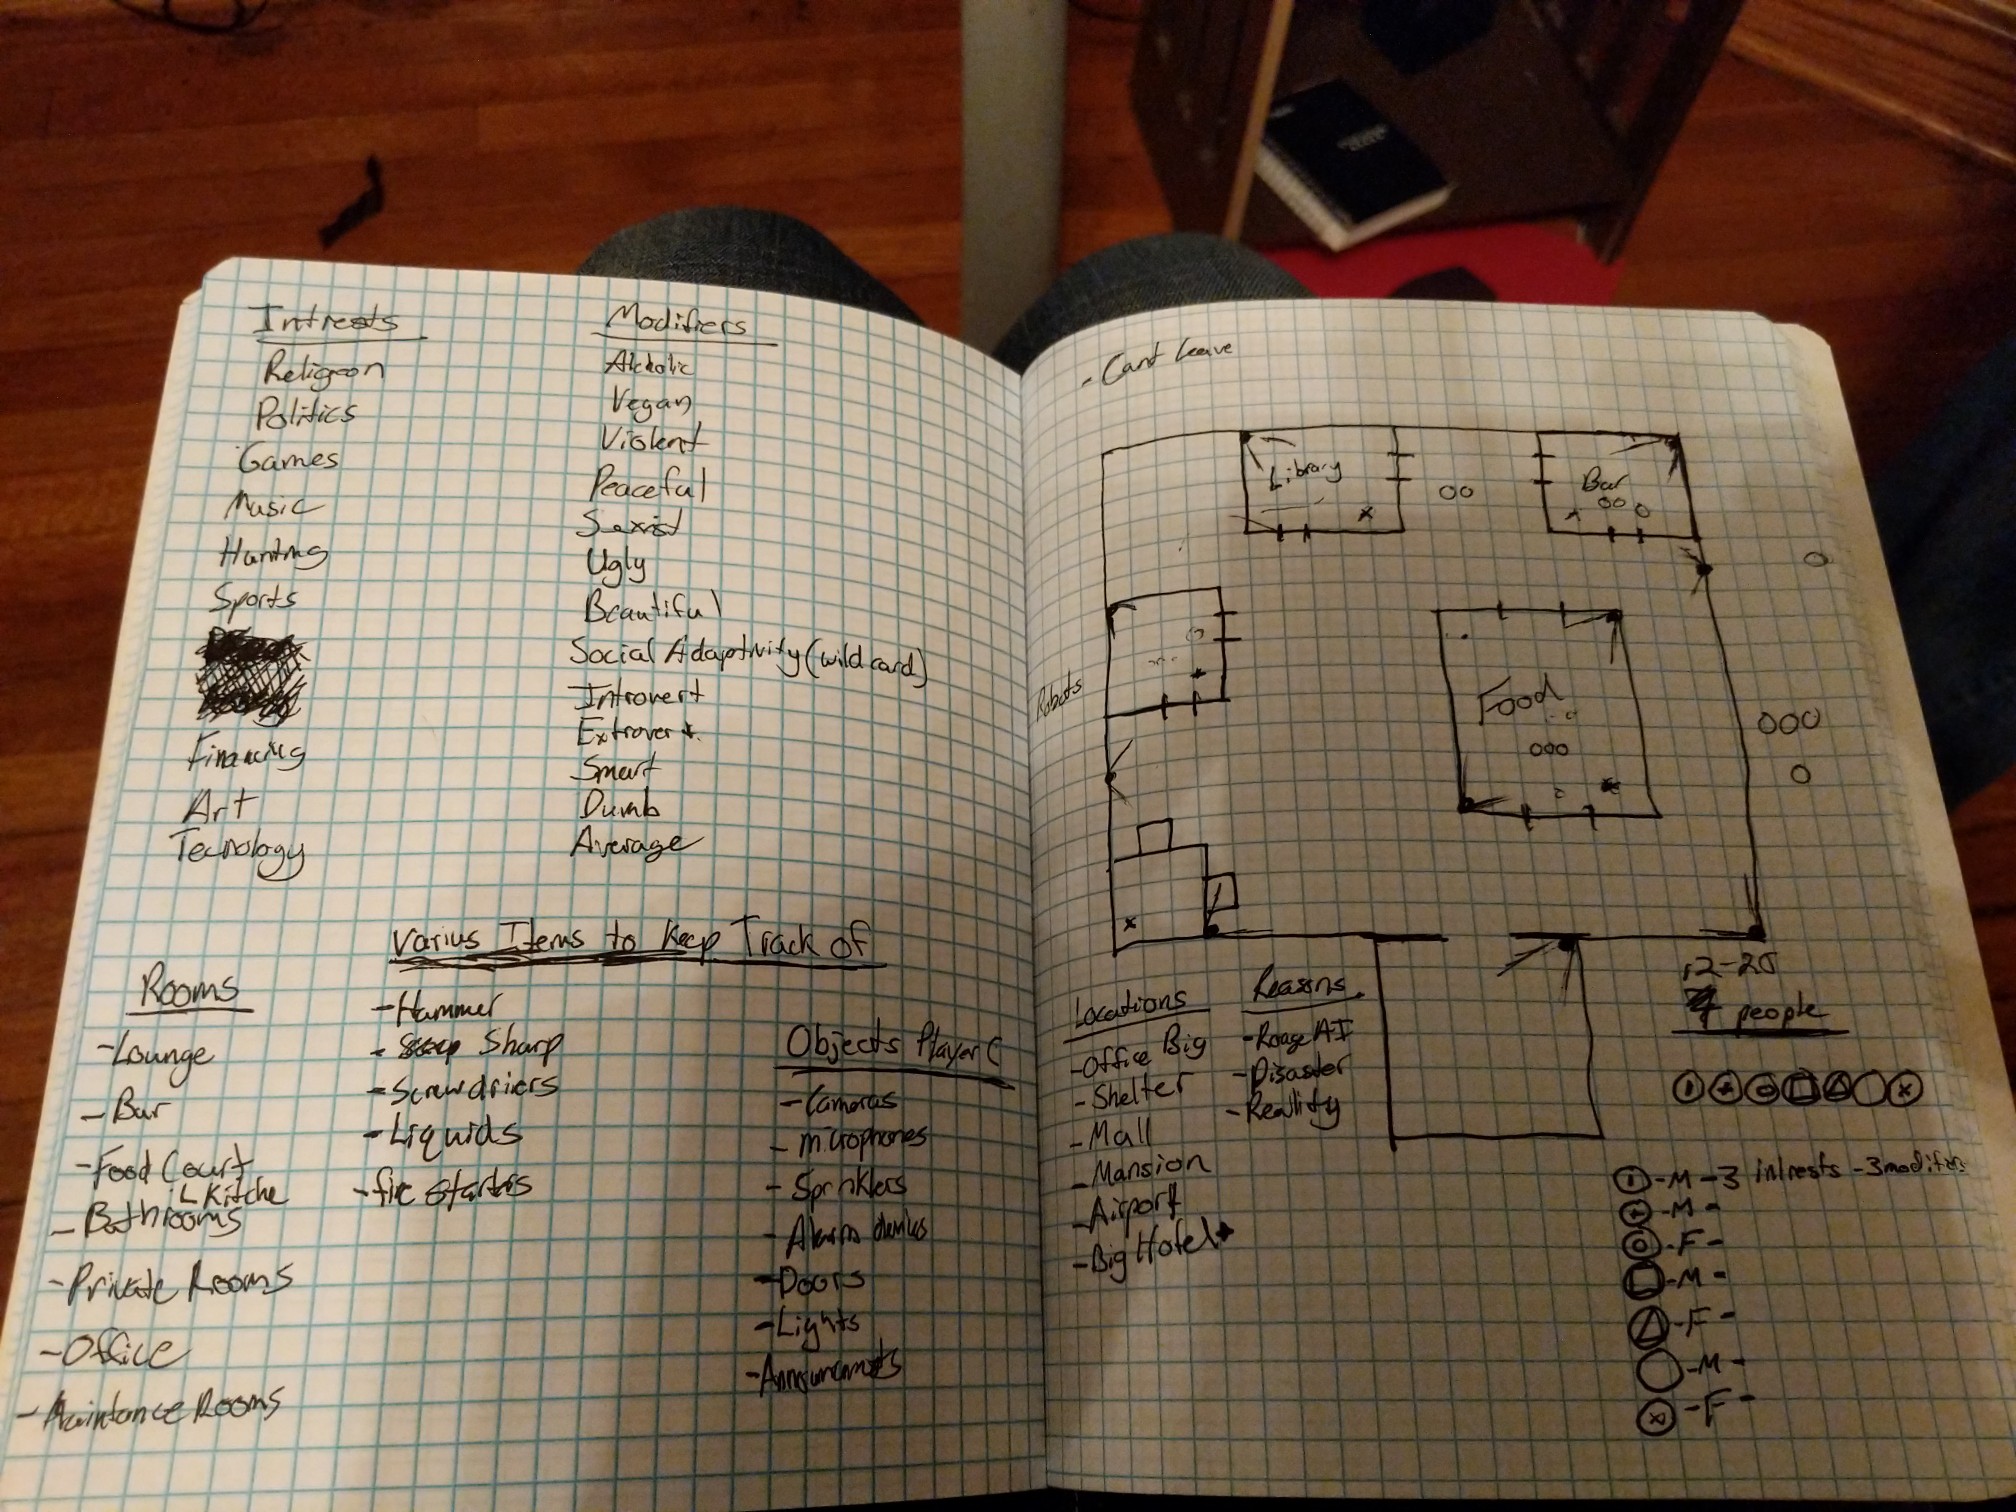 Intrests
Religeon
Politics
Games
Music
Hunting
Sports
Financing
Art
Tecnology
Modifiers
Alcholic
Vegan
Violent
Peaceful
Sexist
Ugly
Beautiful
Social Adaptivity (wild card)
Introvert
Extrovert
Smart
Dumb
Average
Varius Items to Keep Track of
Rooms
-Lounge
-Bar
-Food Court
Kitche
-Bathrooms
-Private Rooms
-Office
-Maintance Rooms
-Hammer
- Sharp
-Screwdriers
-Liquids
-fire starters
Objects Player C
-Cameras
-microphones
-Sprinklers
-Alarm
-Doors
-Lights
-Announcments
- Cant leave
Library
Bar
Robots
Food
Locations
-Office Big
-Shelter
-Mall
-Mansion
-Airport
-Big Hotel
Reasons
-Rouge AI
-Disaster
-Reality
12-20
people
-M -3 intrests -3 modifiers
-M -
-F -
-M -
-F -
-M -
-F -